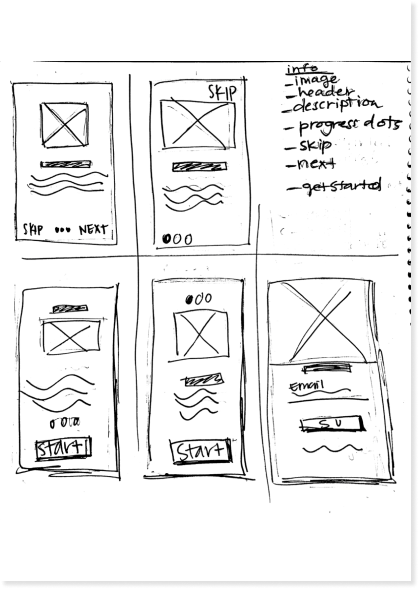 SKIP
info
- image
- header
- description
- progress dots
- skip
- next
- get started
SKIP ••• NEXT
Start
Start
Email
SU